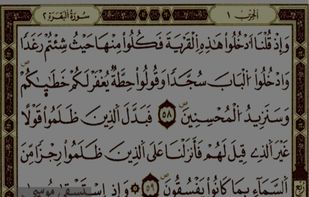 الحزب ١ سورة البقرة ٢
وَإِذْ قُلْنَا اَدْخُلُواْ هَٰذِهِ اِلْقَرْيَةَ فَكُلُواْ مِنْهَا حَيْثُ شِئْتُمْ رَغَداً
وَادْخُلُواْ اُلْبَابَ سُجَّداً وَقُولُواْ حِطَّةٌ يُغْفَرْ لَكُمْ خَطَٰيَٰكُمْ
وَسَنَزِيدُ اُلْمُحْسِنِينَ ٥٨ فَبَدَّلَ اَلذِينَ ظَلَمُواْ قَوْلاً
غَيْرَ اَلذِے قِيلَ لَهُمْ فَأَنزَلْنَا عَلَى اَلذِينَ ظَلَمُواْ رِجْزاً مِّنَ
اَلسَّمَآءِ بِمَا كَانُواْ يَفْسُقُونَ ٥٩ وَإِذِ اِسْتَسْقَىٰ